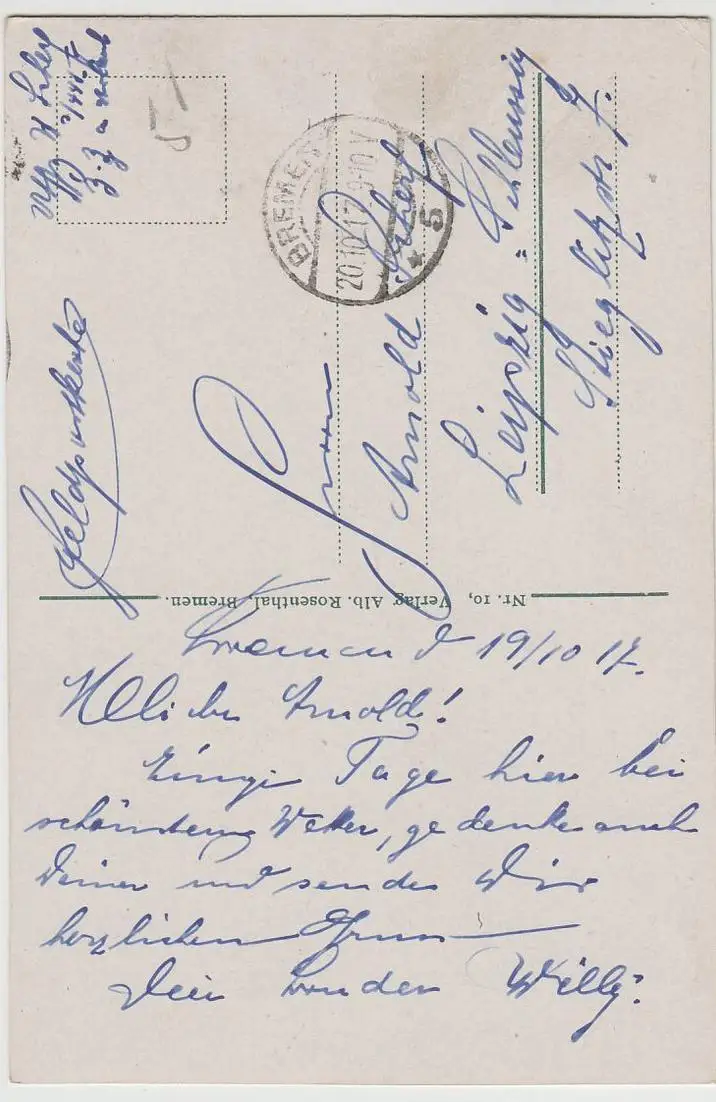 Feldpostkarte
BREMEN
20.10.17. 9-10 V
* 5
5
Herrn
Arnold
Leipzig = Schleussig
Stieglitzstr 7.
Nr. 10, Verlag Alb. Rosenthal, Bremen.
Bremen d 19/10 17.
M lieber Arnold!
Einige Tage hier bei
schönstem Wetter, gedenke auch
Deiner und sende Dir
herzlichen Gruss
Dein Bruder Willy.